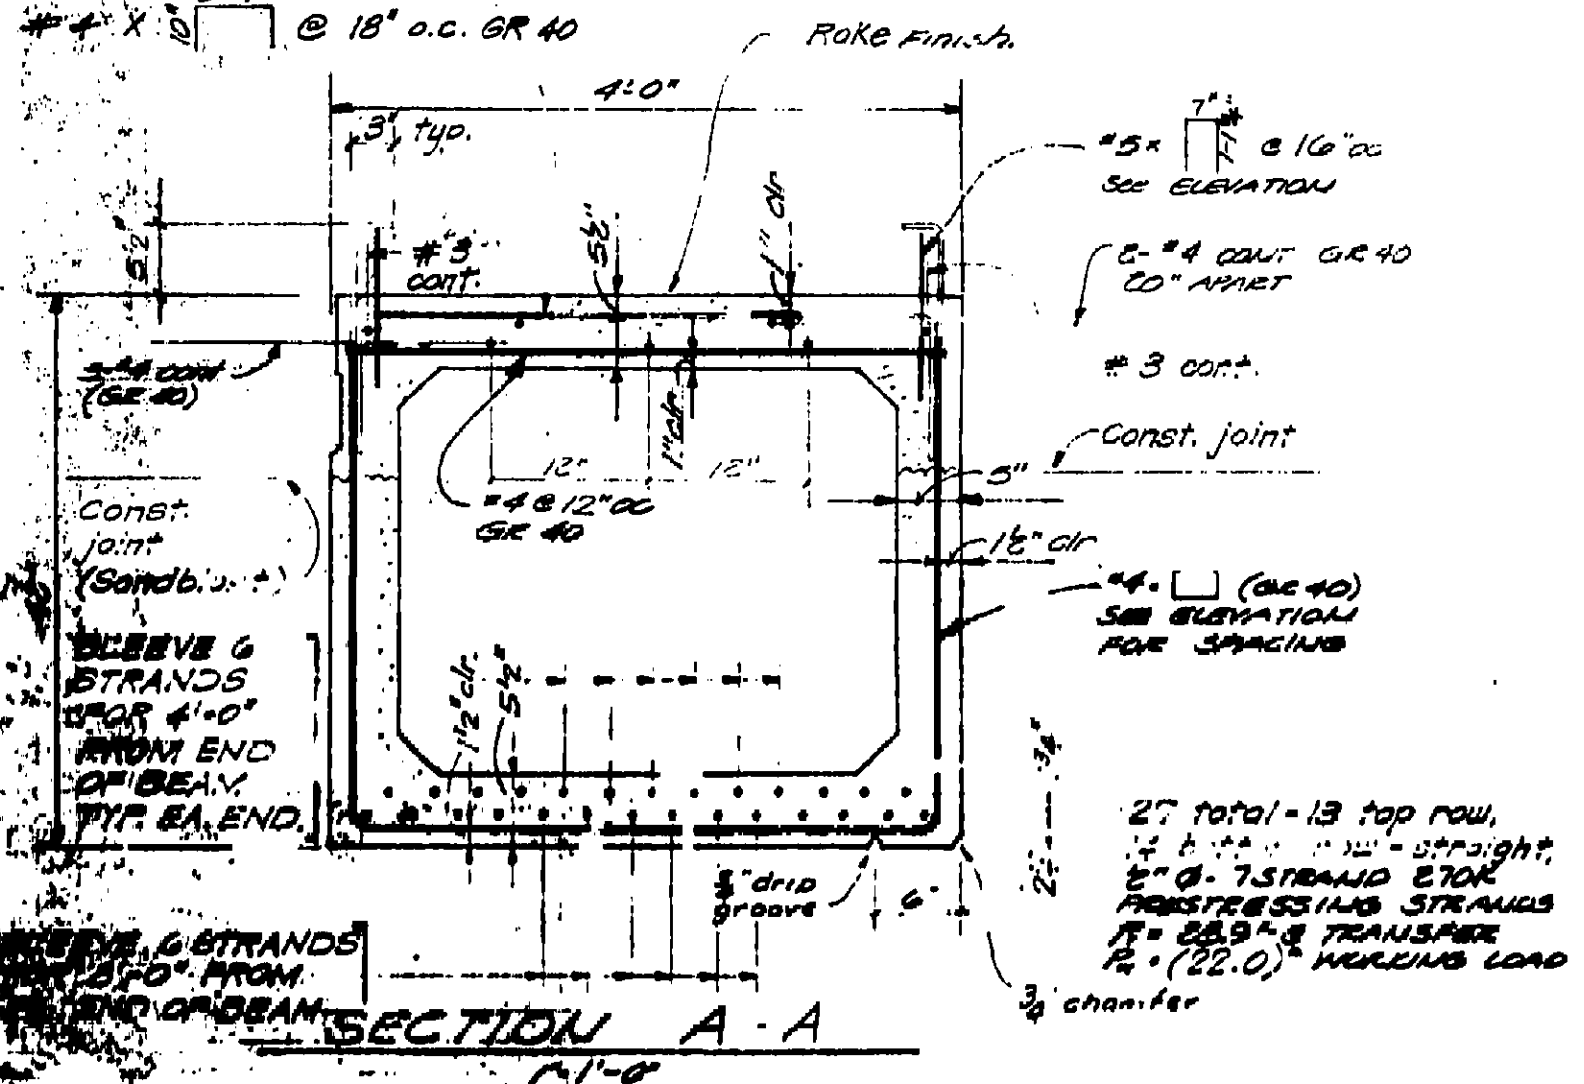 # 4 X 10" @ 18" o.c. GR 40
Rake Finish.
4'-0"
3" typ.
7"
#5 x @ 16" oc
See ELEVATION
1" clr
5½"
5½"
# 3
cont.
2- #4 CONT GR 40
20" APART
#4 cont
(GR 40)
# 3 cont.
1" clr
Const. joint
12"
12"
5"
#4 @ 12" oc
GR 40
Const.
joint
1½" clr
#4 (GR 40)
SEE ELEVATION
FOR SPACING
SLEEVE 6
STRANDS
FOR 4'-0"
FROM END
OF BEAM
TYP. EA. END.
1½" clr.
5½"
27 total - 13 top row,
straight,
½" Ø - 7 STRAND 270K
PRESTRESSING STRANDS
= 28.9 K @ TRANSFER
(22.0) K WORKING LOAD
¾" drip
groove
6"
¾ chamfer
SLEEVE 6 STRANDS
FROM
END OF BEAM
SECTION A-A
1'-0"